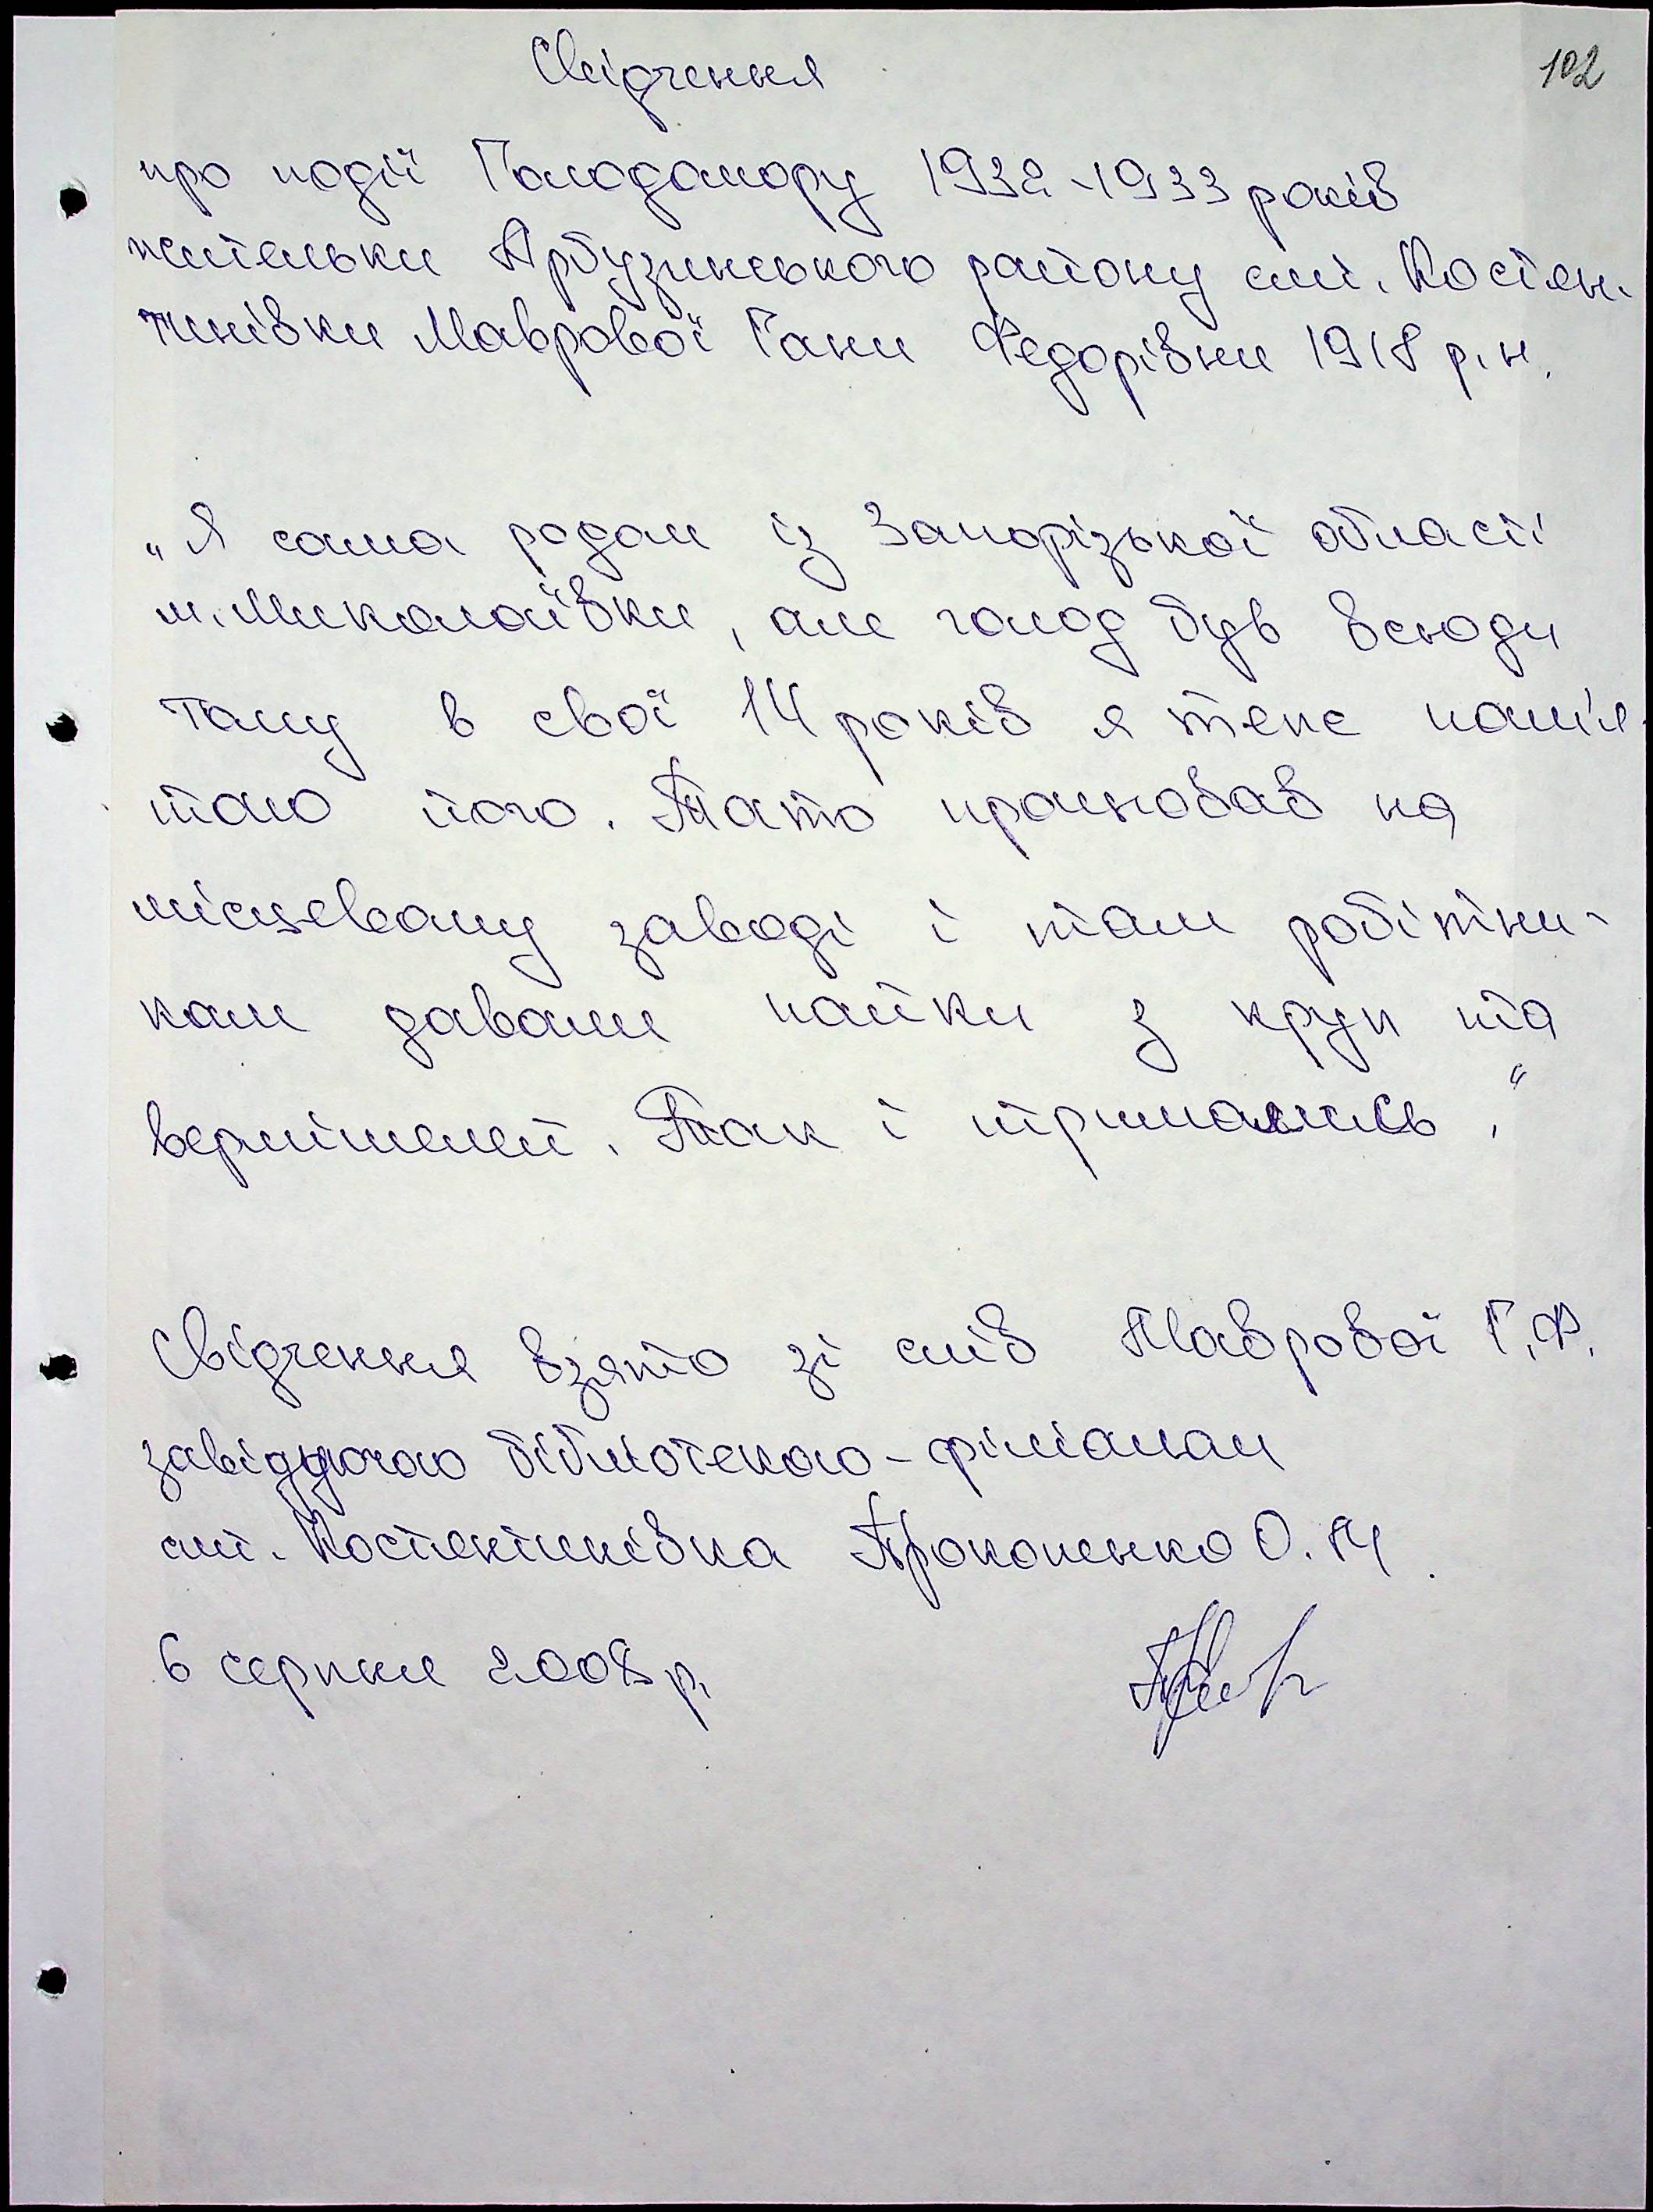 102
Свідчення
про події Голодомору 1932-1933 років
жительки Арбузинського району смт. Костян-
тинівки Маврової Гани Федорівни 1918 р.н.
„Я сама родом із Запорізької області
м. Миколаївки, але голод був всюди
тому в свої 14 років я теж пам'я-
таю його. Тато працював на
місцевому заводі і там робітни-
кам давали пайки з круп та
вермішелей. Так і тримались."
Свідчення взято зі слів Маврової Г.Ф.
завідуючою бібліотекою-філіалом
смт. Костянтинівка Прокопенко О.М.
6 серпня 2008 р.